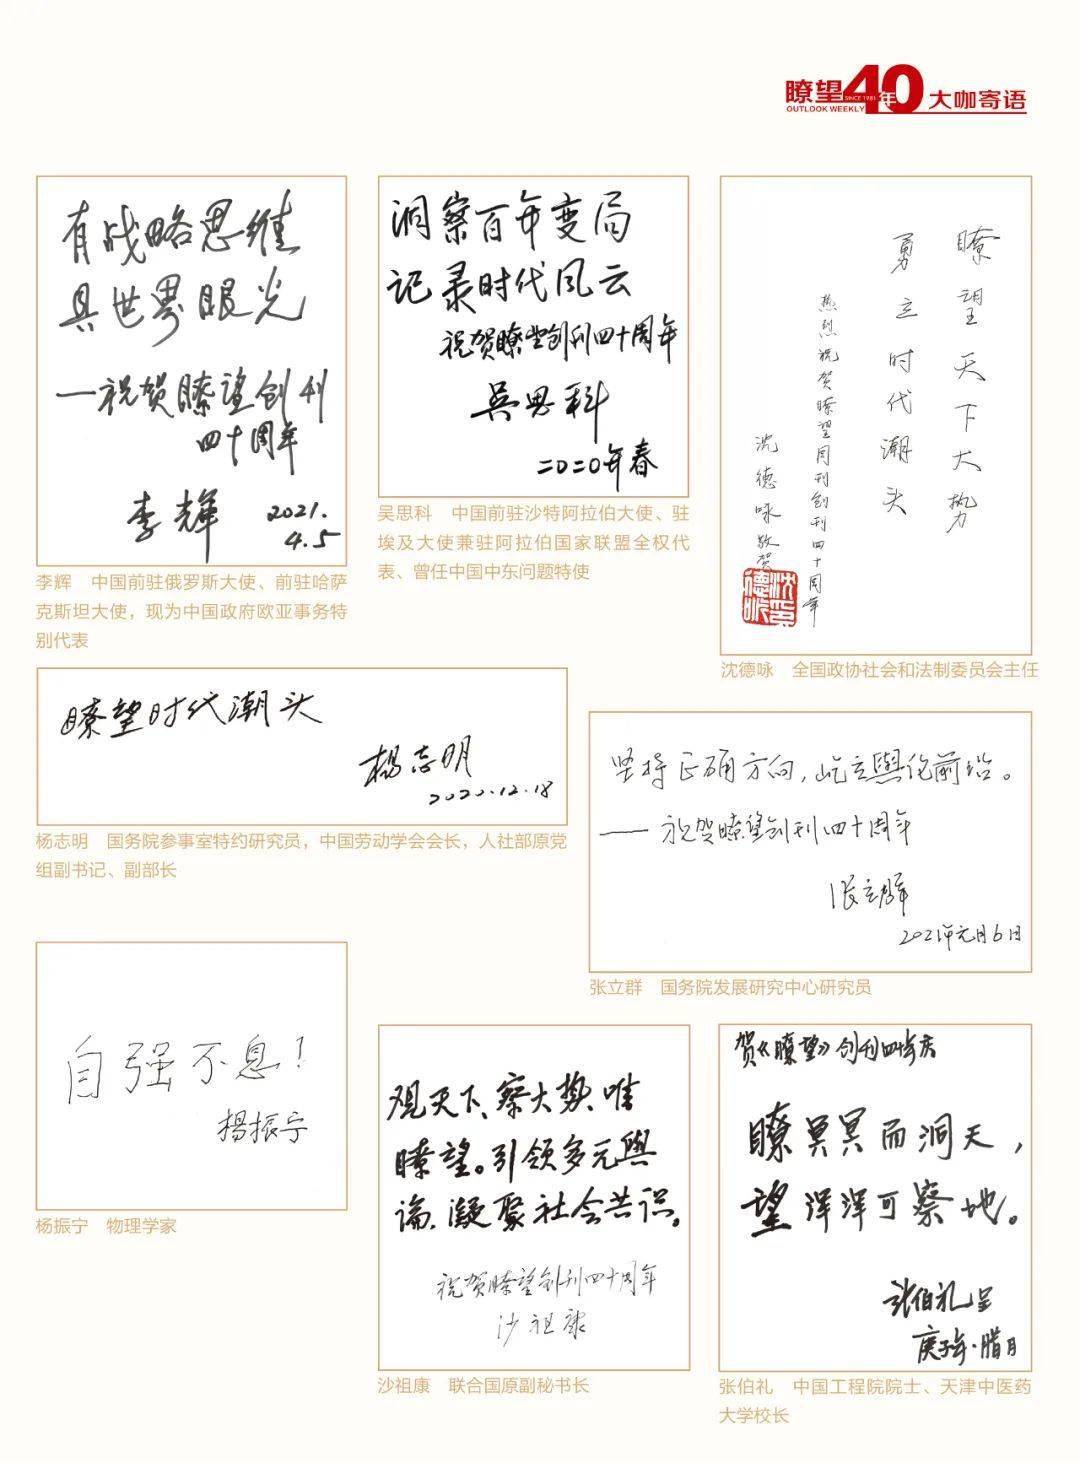 瞭望40年 大咖寄语
SINCE 1981
OUTLOOK WEEKLY
有战略思维
具世界眼光
—祝贺瞭望创刊
四十周年
李辉 2021.
4.5
李辉 中国前驻俄罗斯大使、前驻哈萨
克斯坦大使，现为中国政府欧亚事务特
别代表
洞察百年变局
记录时代风云
祝贺瞭望创刊四十周年
吴思科
二〇二〇年春
吴思科 中国前驻沙特阿拉伯大使、驻
埃及大使兼驻阿拉伯国家联盟全权代
表、曾任中国中东问题特使
瞭望天下大势
勇立时代潮头
热烈祝贺瞭望周刊创刊四十周年
沈德咏敬贺
沈德咏 全国政协社会和法制委员会主任
瞭望时代潮头
杨志明
2020.12.18
杨志明 国务院参事室特约研究员，中国劳动学会会长，人社部原党
组副书记、副部长
坚持正确方向，屹立舆论前沿。
——祝贺瞭望创刊四十周年
张立群
2021年元月6日
张立群 国务院发展研究中心研究员
自强不息！
杨振宁
杨振宁 物理学家
观天下、察大势、唯
瞭望。引领多元舆
论，凝聚社会共识。
祝贺瞭望创刊四十周年
沙祖康
沙祖康 联合国原副秘书长
贺《瞭望》创刊四十年庆
瞭冥冥而洞天，
望洋洋可察地。
张伯礼呈
庚子年·腊月
张伯礼 中国工程院院士、天津中医药
大学校长